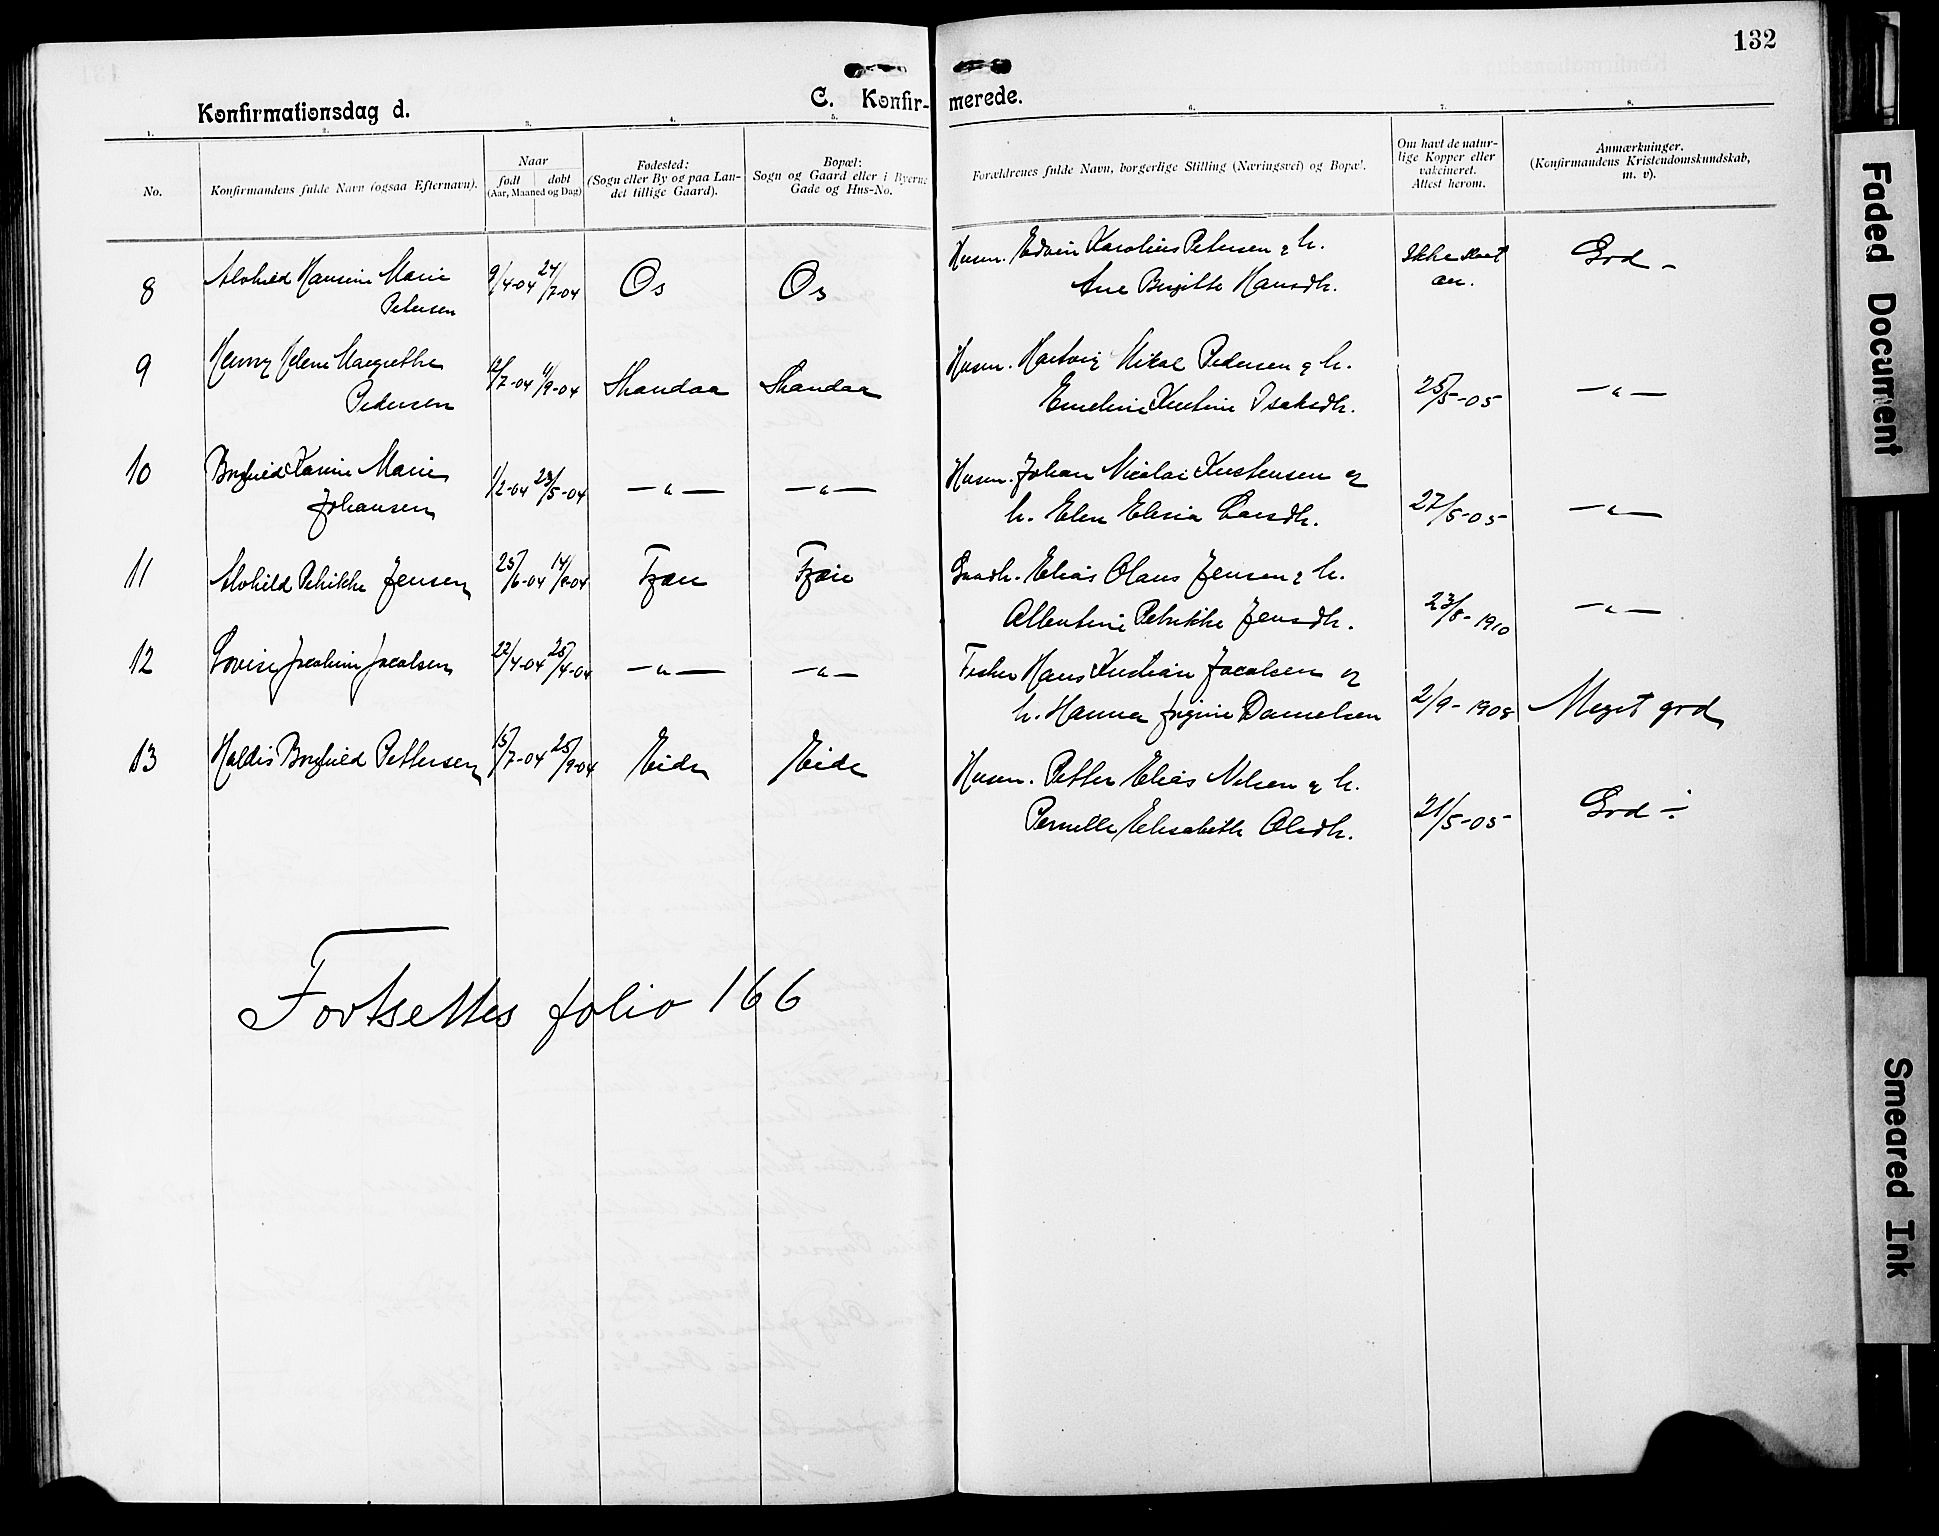 132
Konfirmationsdag d.
C. Konfirmerede.
1. 2. 3. 4. 5. 6. 7. 8.
No.
Konfirmandens fulde Navn (ogsaa Efternavn).
Naar
født døbt
(Aar, Maaned og Dag)
Fødested:
(Sogn eller By og paa Landet tillige Gaard).
Bopæl:
Sogn og Gaard eller i Byerne
Gade og Hus-No.
Forældrenes fulde Navn, borgerlige Stilling (Næringsvei) og Bopæl.
Om havt de naturlige Kopper eller
vakcineret.
Attest herom.
Anmærkninger.
(Konfirmandens Kristendomskundskab,
m. v).
8 Alvhild Hansine Marie
Petersen
9/4-04 24/7-04 Os Os
Husm. Edvin Karolius Petersen & h.
Ane Birgitte Hansdtr.
Ikke slaat
an.
God -
9 Henny Helene Margrethe
Pedersen
12/7-04 11/9-04 Skandaa Skandaa
Husm. Hartvig Mikal Pedersen & h.
Emeline Kristine Isaksdtr.
25/5-05
-"-
10 Borghild Karine Marie
Johansen
1/2-04 23/5-04 -"- -"-
Husm. Johan Nicolai Kristensen og
h. Elen Elisia Larsdtr.
27/5-05
-"-
11 Alvhild Petrikke Jensen
25/6-04 14/8-04
Gaardb. Elias Olaus Jensen & h.
Albentine Petrikke Jensdtr.
23/8-1910
-"-
12 Lovise Joakim Jacobsen
22/4-04 25/4-04 -"- -"-
Fisker Hans Kristian Jacobsen og
h. Hanna Danielsen
2/9-1908
Meget god
13 Haldis Borghild Pettersen
15/7-04 25/9-04 Eide Eide
Husm. Petter Elias Nilsen & h.
Pernille Elisabeth Olsdtr.
21/5-05
God ÷
Fortsettes folio 166
Faded Document
Smeared Ink